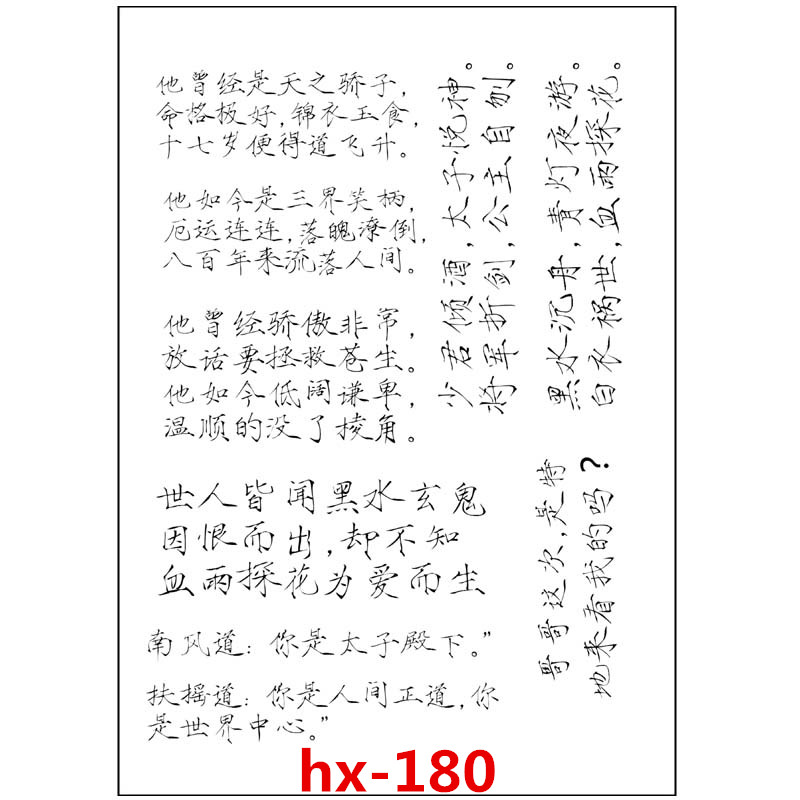 他曾经是天之骄子，
命格极好，锦衣玉食，
十七岁便得道飞升。
他如今是三界笑柄，
厄运连连，落魄潦倒，
八百年来流落人间。
他曾经骄傲非常，
放话要拯救苍生。
他如今低阔谦卑，
温顺的没了棱角。
世人皆闻黑水玄鬼
因恨而出，却不知
血雨探花为爱而生
南风道：你是太子殿下。”
扶摇道：你是人间正道，你
是世界中心。”
少君倾酒，太子悦神。
将军折剑，公主自刎。
黑水沉舟，青灯夜游。
白衣祸世，血雨探花。
哥哥这次，是特
地来看我的吗？
hx-180